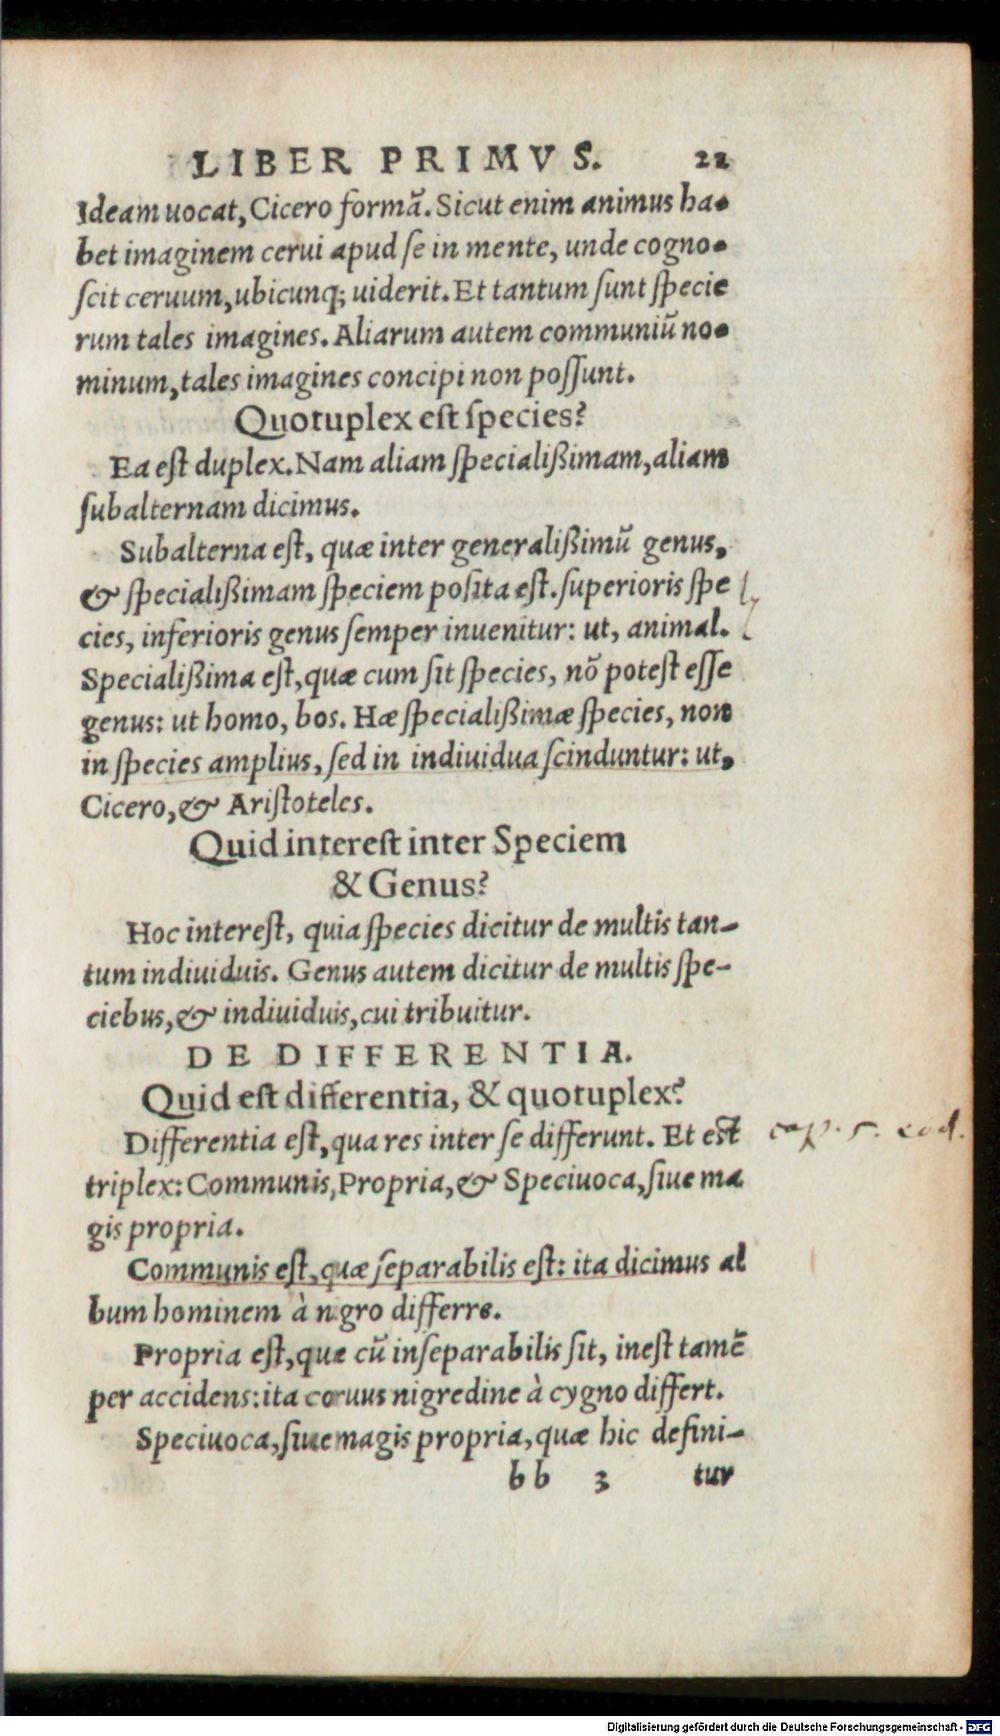 LIBER PRIMVS. 21
Ideam uocat, Cicero formā. Sicut enim animus ha-
bet imaginem cerui apud se in mente, unde cogno-
scit ceruum, ubicunq; uiderit. Et tantum sunt specie
rum tales imagines. Aliarum autem communiū no-
minum, tales imagines concipi non possunt.
Quotuplex est species?
Ea est duplex. Nam aliam specialißimam, aliam
subalternam dicimus.
Subalterna est, quæ inter generalißimū genus,
& specialißimam speciem posita est. superioris spe
cies, inferioris genus semper inuenitur: ut, animal.
Specialißima est, quæ cum sit species, nō potest esse
genus: ut homo, bos. Hæ specialißimæ species, non
in species amplius, sed in indiuidua scinduntur: ut,
Cicero, & Aristoteles.
Quid interest inter Speciem
& Genus?
Hoc interest, quia species dicitur de multis tan-
tum indiuiduis. Genus autem dicitur de multis spe-
ciebus, & indiuiduis, cui tribuitur.
DE DIFFERENTIA.
Quid est differentia, & quotuplex?
Differentia est, qua res inter se differunt. Et est
cap. 5. eod.
triplex: Communis, Propria, & Speciuoca, siue ma
gis propria.
Communis est, quæ separabilis est: ita dicimus al
bum hominem à nigro differre.
Propria est, quæ cū inseparabilis sit, inest tamē
per accidens: ita coruus nigredine à cygno differt.
Speciuoca, siue magis propria, quæ hic defini-
bb 3 tur
Digitalisierung gefördert durch die Deutsche Forschungsgemeinschaft - DFG